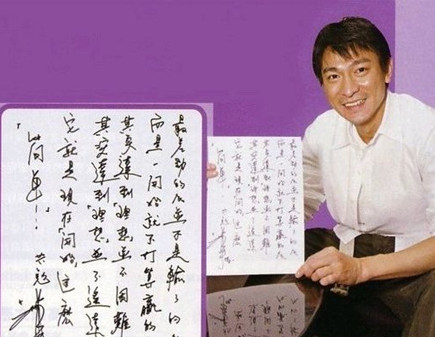 最差劲的人並不是輸了的人
而是一開始就不打算贏的
其實達到“理想”並不困難
其實達到“理想”並不遙遠
它就是現在“開始”這麼
簡單！
共勉